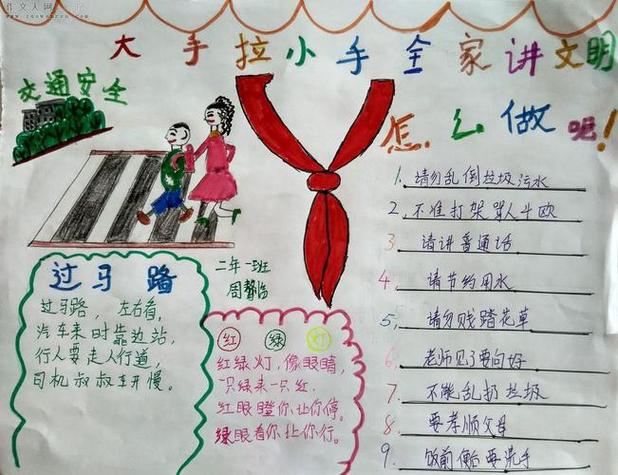 作文人网
大手拉小手全家讲文明
交通安全
怎么做呢!
过马路
过马路，左右看，
汽车来时靠边站，
行人要走人行道，
司机叔叔车开慢。
二年一班
红 绿 灯
红绿灯，像眼睛，
一只绿来一只红，
红眼瞪你，让你停。
绿眼看你，让你行。
1. 请勿乱倒垃圾污水
2. 不准打架骂人斗欧
3. 请讲普通话
4 请节约用水
5, 请勿贱踏花草
6, 老师见了要问好
7 不能乱扔垃圾
8 要孝顺父母
9. 饭前便后要洗手